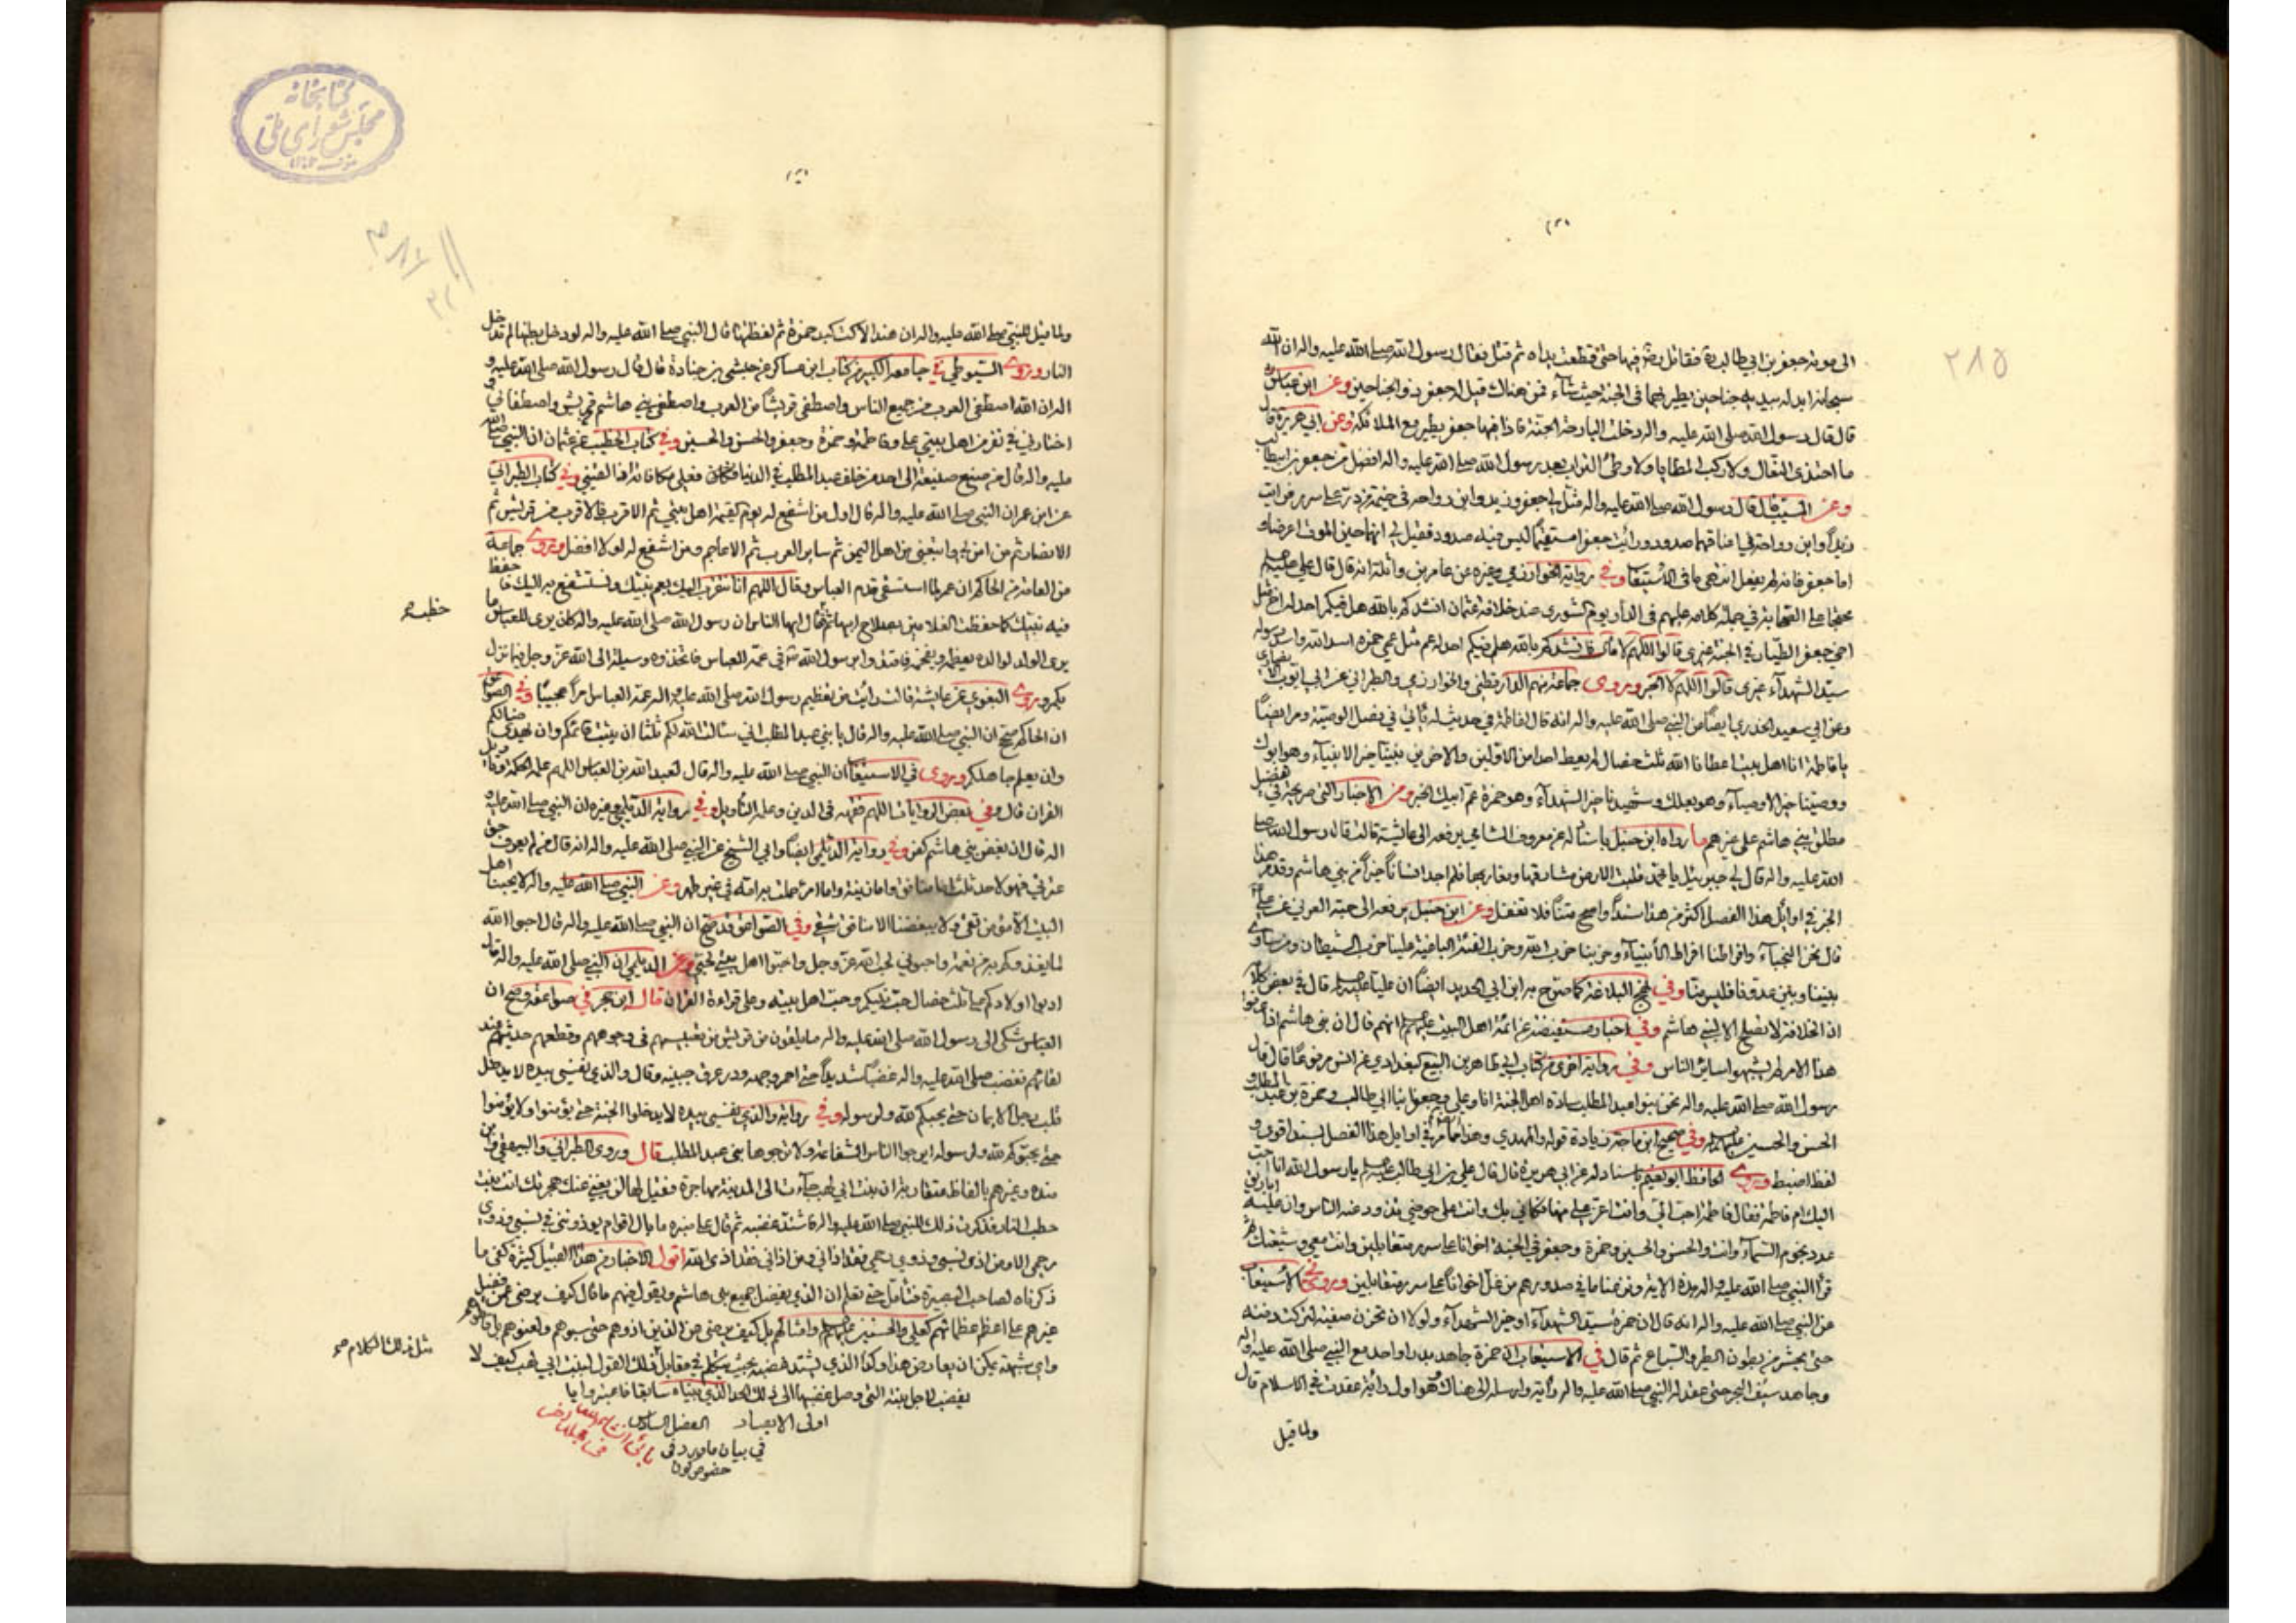 ٢٨٥
الى موته جعفر بن ابي طالب ره فقاتل رض فيها حتى قطعت يداه ثم قتل فقال رسول الله صلى الله عليه واله ان الله
سبحانه ابدله بيديه جناحين يطير بهما في الجنة حيث شآء فمن هناك قيل له جعفر ذو الجناحين وعن ابن عباس
قال قال رسول الله صلى الله عليه واله دخلت البارحة الجنة فاذا فيها جعفر يطير مع الملائكة وعن ابي هريرة قال
ما احتذى النعال ولا ركب المطايا ولا وطئ التراب بعد رسول الله صلى الله عليه واله افضل من جعفر بن ابيطالب
وعن المسيب قال قال رسول الله صلى الله عليه واله مثل لي جعفر وزيد وابن رواحه في خيمة من در على سرير فرايت
زيداً وابن رواحة في اعناقهما صدود ورأيت جعفرا مستقيماً ليس فيه صدود فقيل لي انهما حين الموت اعرضا و
اما جعفر فانه لم يفعل انتهى ما في الاستيعاب وفي رواية الخوارزمي وغيره عن عامر بن واثلة انه قال قال علي عليه السلم
محتجا على الصحابة في جملة كلامه عليهم في الدار يوم الشورى عند خلافة عثمان انشدكم بالله هل فيكم احد له اخ مثل
اخي جعفر الطيار في الجنة غيري قالوا اللهم لا قال فانشدكم بالله هل فيكم احد له عم مثل عمي حمزه اسد الله واسد رسوله
سيد الشهدآء غيري قالوا اللهم لا الخبر ويروى جماعة منهم الدارقطني والخوارزمي والطبراني عن ابي ايوب الانصاري
وعن ابي سعيد الخدري ايضاً عن النبي صلى الله عليه واله انه قال لفاطمة في حديث له ياتي في فصل الوصية ومر ايضاً
يا فاطمة انا اهل بيت اعطانا الله ثلث خصال لم يعط احد من الاولين والاخرين نبينا خير الانبيآء وهو ابوك
ووصينا خير الاوصيآء وهو بعلك وشهيدنا خير الشهدآء وهو حمزة عم ابيك الخبر ومن الاخبار التي صريحة في فضل
مطلق بني هاشم على غيرهم ما رواه ابن حنبل باسناد له عن معروف الشامي يرفعه الى عائشة قالت قال رسول الله صلى
الله عليه واله قال لي جبرئيل يا محمد قلبت الارض مشارقها ومغاربها فلم اجد انسانا خيراً من بني هاشم وقد مر هذا
الخبر في اوائل هذا الفصل اكثر من هذا سنداً واصح متناً فلا تغفل وعن ابن حنبل يرفعه الى حبة العرني عن علي ع
قال نحن النجباء وافراطنا افراط الانبيآء وحزبنا حزب الله وحزب الفئة الباغية علينا حزب الشيطان ومن ساوى
بيننا وبين عدونا فليس منا وفي نهج البلاغة كما صرح به ابن ابي الحديد ايضاً ان عليا عليه السلم قال في بعض كلامه
ان الخلافة لا تصلح الا لبني هاشم وفي اخبار مستفيضة عن ائمة اهل البيت عليهم السلم انهم قال ان بني هاشم اذا عرفوا
هذا الامر لم يشبهوا سائر الناس وفي رواية اخرى من كتاب ابي طاهر بن البيع البغدادي عن انس مرفوعاً قال قال
رسول الله صلى الله عليه واله نحن بنو عبد المطلب سادة اهل الجنة انا وعلي وجعفر ابنا ابي طالب وحمزة بن عبد المطلب و
الحسن والحسين عليهم السلم وفي صحيح ابن ماجة زيادة قوله والمهدي وهذا مما مر في اوايل هذا الفصل بسند اقوى و
لفظ اضبط ويروى الحافظ ابو نعيم باسناد له عن ابي هريرة قال قال علي بن ابي طالب عليه السلم يا رسول الله انا احب
اليك ام فاطمة فقال فاطمة احب الي وانت اعز علي منها فكاني بك وانت على حوضي تذود عنه الناس وان عليه اباريق
عدد نجوم السماء وانت والحسن والحسين وحمزة وجعفر في الجنة اخوانا على سرر متقابلين وانت معي وشيعتك ثم
قرأ النبي صلى الله عليه واله هذه الاية ونزعنا ما في صدورهم من غل اخواناً على سرر متقابلين وروي في الاستيعاب
عن النبي صلى الله عليه واله انه قال ان حمزة سيد الشهدآء او خير الشهدآء ولولا ان تحزن صفية لتركت دفنه
حتى يحشر من بطون الطير والسباع ثم قال في الاستيعاب ان حمزة جاهد بدرا واحد مع النبي صلى الله عليه واله
وجاهد سيف البحر حتى عقد له النبي صلى الله عليه واله رأية وارسله الى هناك وهو اول راية عقدت في الاسلام قال
ولما قيل
كتابخانه
مجلس شورای ملی
ولما قيل للنبي صلى الله عليه واله ان هندا لاكت كبد حمزة ثم لفظتها قال النبي صلى الله عليه واله لو دخل بطنها لم تدخل
النار ويروى السيوطي في جامعه الكبير من كتاب ابن عساكر عن حبشي بن جنادة قال قال رسول الله صلى الله عليه و
اله ان الله اصطفى العرب من جميع الناس واصطفى قريشاً من العرب واصطفى بني هاشم من قريش واصطفاني و
اختارني في نفر من اهل بيتي علي وفاطمة وحمزة وجعفر والحسن والحسين وفي كتاب الخطيب عن عثمان ان النبي صلى الله
عليه واله قال من صنع صنيعة الى احد من خلف عبد المطلب في الدنيا فعلي مكافاته اذا لقيني وفي كتاب الطبراني
عن ابن عمر ان النبي صلى الله عليه واله قال اول من اشفع له يوم القيمة اهل بيتي ثم الاقرب فالاقرب من قريش ثم
الانصار ثم من امن بي واتبعني من اهل اليمن ثم ساير العرب ثم الاعاجم ومن اشفع له اولا افضل ويروى جماعة
من العامة منهم الحاكم ان عمر لما استسقى قدم العباس وقال اللهم انا نتقرب اليك بعم نبيك ونستشفع به اليك فاحفظ
فيه نبيك كما حفظت الغلامين بصلاح ابيهما ثم قال ايها الناس ان رسول الله صلى الله عليه واله كان يرى للعباس ما
خطب
يرى الولد لوالده يعظمه ويفخمه فاقتدوا برسول الله ص في عمه العباس فاتخذوه وسيلة الى الله عز وجل فيما نزل
بكم ويروى البغوي عن عايشة قالت رأيت من تعظيم رسول الله صلى الله عليه واله عمه العباس امراً عجيباً وفي الصواعق
ان الحاكم صحح ان النبي صلى الله عليه واله قال يا بني عبد المطلب اني سئالت الله لكم ثلثا ان يثبت قائمكم وان يهدي ضالكم
وان يعلم جاهلكم ويروى في الاستيعاب ان النبي صلى الله عليه واله قال لعبد الله بن العباس اللهم علمه الحكمة وتاويل
القران قال وفي بعض الروايات اللهم فقهه في الدين وعلمه التأويل وفي رواية الديلمي وغيره ان النبي صلى الله عليه و
اله قال ان بغض بني هاشم كفر وفي رواية الديلمي ايضاً وابي الشيخ عن النبي صلى الله عليه واله انه قال من لم يعرف حق
عترتي فهو لاحد ثلث اما منافق واما لزنية واما امرئ حملت به امه في غير طهر وعن النبي صلى الله عليه واله لا يحبنا اهل
البيت الا مؤمن تقي ولا يبغضنا الا منافق شقي وفي الصواعق قد صح ان النبي صلى الله عليه واله قال احبوا الله
لما يغذوكم به من نعمه واحبوني لحب الله عز وجل واحبوا اهل بيتي لحبي وعن الديلمي ان النبي صلى الله عليه واله قال
ادبوا اولادكم على ثلث خصال حب نبيكم وحب اهل بيته وعلى قراءة القران قال ابن حجر في صواعقه وصح ان
العباس شكى الى رسول الله صلى الله عليه واله ما يلقون من قريش من تعبيسهم في وجوههم وقطعهم حديثهم عند
لقائهم فغضب صلى الله عليه واله غضباً شديداً حتى احمر وجهه ودر عرق جبينه وقال والذي نفسي بيده لا يدخل
قلب رجل الايمان حتى يحبكم لله ولرسوله وفي رواية والذي نفسي بيده لا يدخلوا الجنة حتى يؤمنوا ولا يؤمنوا
حتى يحبوكم لله ولرسوله ايرجوا الناس الشفاعة ولا يرجوها بني عبد المطلب قال وروى الطبراني والبيهقي وابن
منده وغيرهم بالفاظ متقاربة ان بنت ابي لهب جآءت الى المدينة مهاجرة فقيل لها لن يغني عنك هجرتك انت بنت
حطب النار فذكرت ذلك للنبي صلى الله عليه واله فاشتد غضبه ثم قال على منبره ما بال اقوام يؤذونني في نسبي وذوي
رحمي الا ومن اذى نسبي وذوي رحمي فقد اذاني ومن اذاني فقد اذى الله اقول الاخبار من هذا القبيل كثيرة كفى ما
ذكرناه لصاحب البصيرة فتامل حتى تعلم ان الذي يفضل جميع بني هاشم ويقول فيهم ما قال كيف يرضى عمن يفضل
غيرهم على اعظم عظمائهم كعلي والحسنين عليهم السلم وامثالهم بل كيف يرضى عن الذين اذوهم حتى سبوهم ولعنوهم
واي شبهة يمكن ان يعارض هذا وكذا الذي يشتد غضبه بحيث يتكلم في مقابل ذلك القول لبنت ابي لهب كيف لا
مثل ذلك الكلام
يغضب لاجل بنته التي وصل غضبها الى ذلك الحد الذي بيناه سابقا فاعتبروا يا
اولى الابصار الفصل السادس
في بيان ما ورد في
خصوص كون